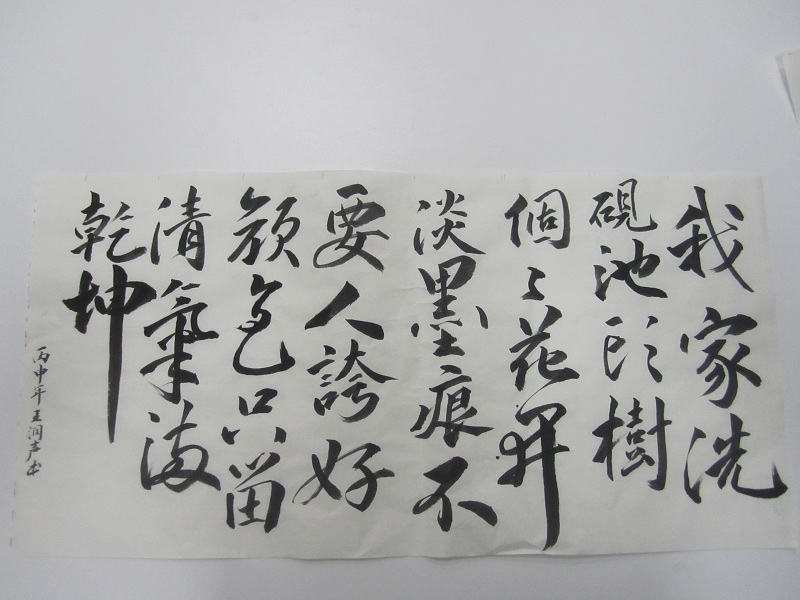 我家洗
砚池头樹
個々花开
淡墨痕不
要人誇好
颜色只留
清氣满
乾坤
丙申年王润声书